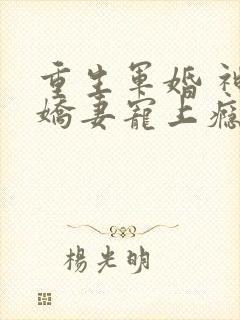 重生軍婚 神
嬌妻寵上癮
楊光明